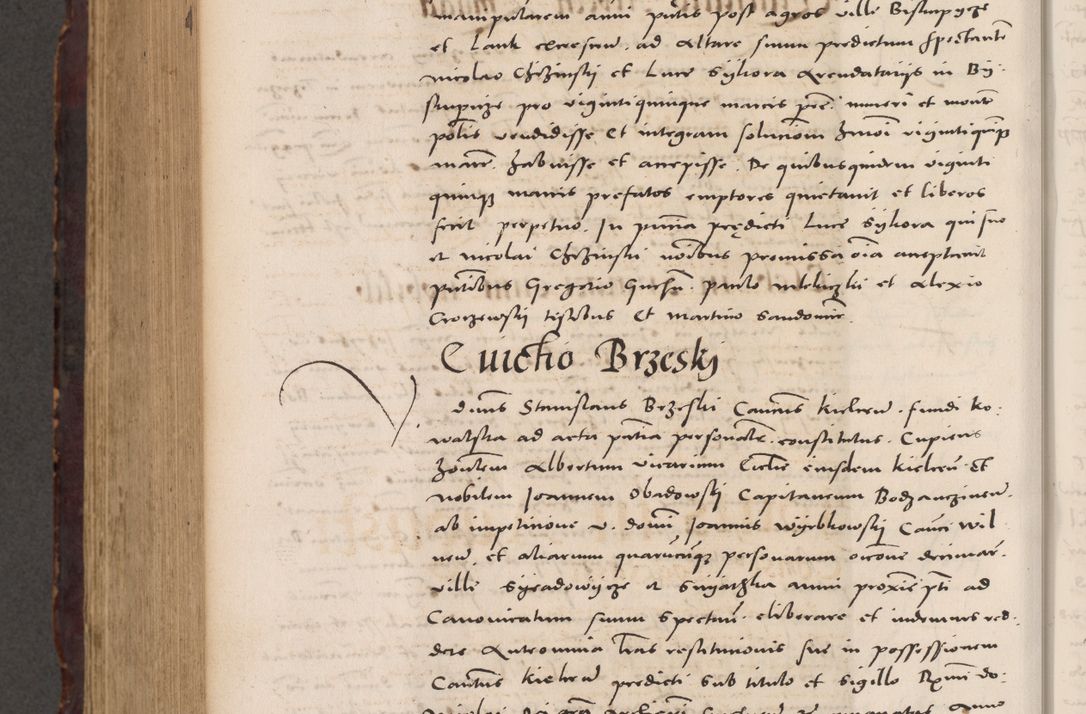 manipularem anni pntis post agros ville Bisturpycze
et Lank excrescen. ad Altare suum predictum spectante
Nicolao Chrzinskij et Luce Sykora Arendatarijs in By:
sturpicze pro vigintiquinque marcis pre. numeri et monte
polis vendidisse Et integram solucionem vigintiquinque
marc. habuisse et accepisse. De quibusquidem viginti
quinque marcis prefatos emptores quietavit et liberos
fecit perpetuo. In pncia predicti Luce Sykora qui suo
et Nicolai Chrzinskij noibus premissa oia acceptavit
pntibus Gregorio Paulo et Alexio
Croczewskij testibus Et Martino Sandomir.
Evictio Brzeskj
dnus Stanislaus Brzeski Canonicus kielcen. fundi ko:
walska ad acta personaliter constitutus. Cupiens
Albertum vicarium Ecclie eiusdem kielcen. Et
Nobilem Joannem Obadowskj Capitaneum Bodzanczinen.
ab impeticione v. domini Joannis Wyrbkowskj Canci Wil
nen. et aliarum quarumcumque personarum occone decimar.
ville Syradowycze et anni proxie pti ad
Canonicatum suum spectan. eliberare et indemnes red:
dere Introminia Lras restitucionis sue in possessionem
Canctus kielcen predicti sub titulo et sigillo Rximi do: